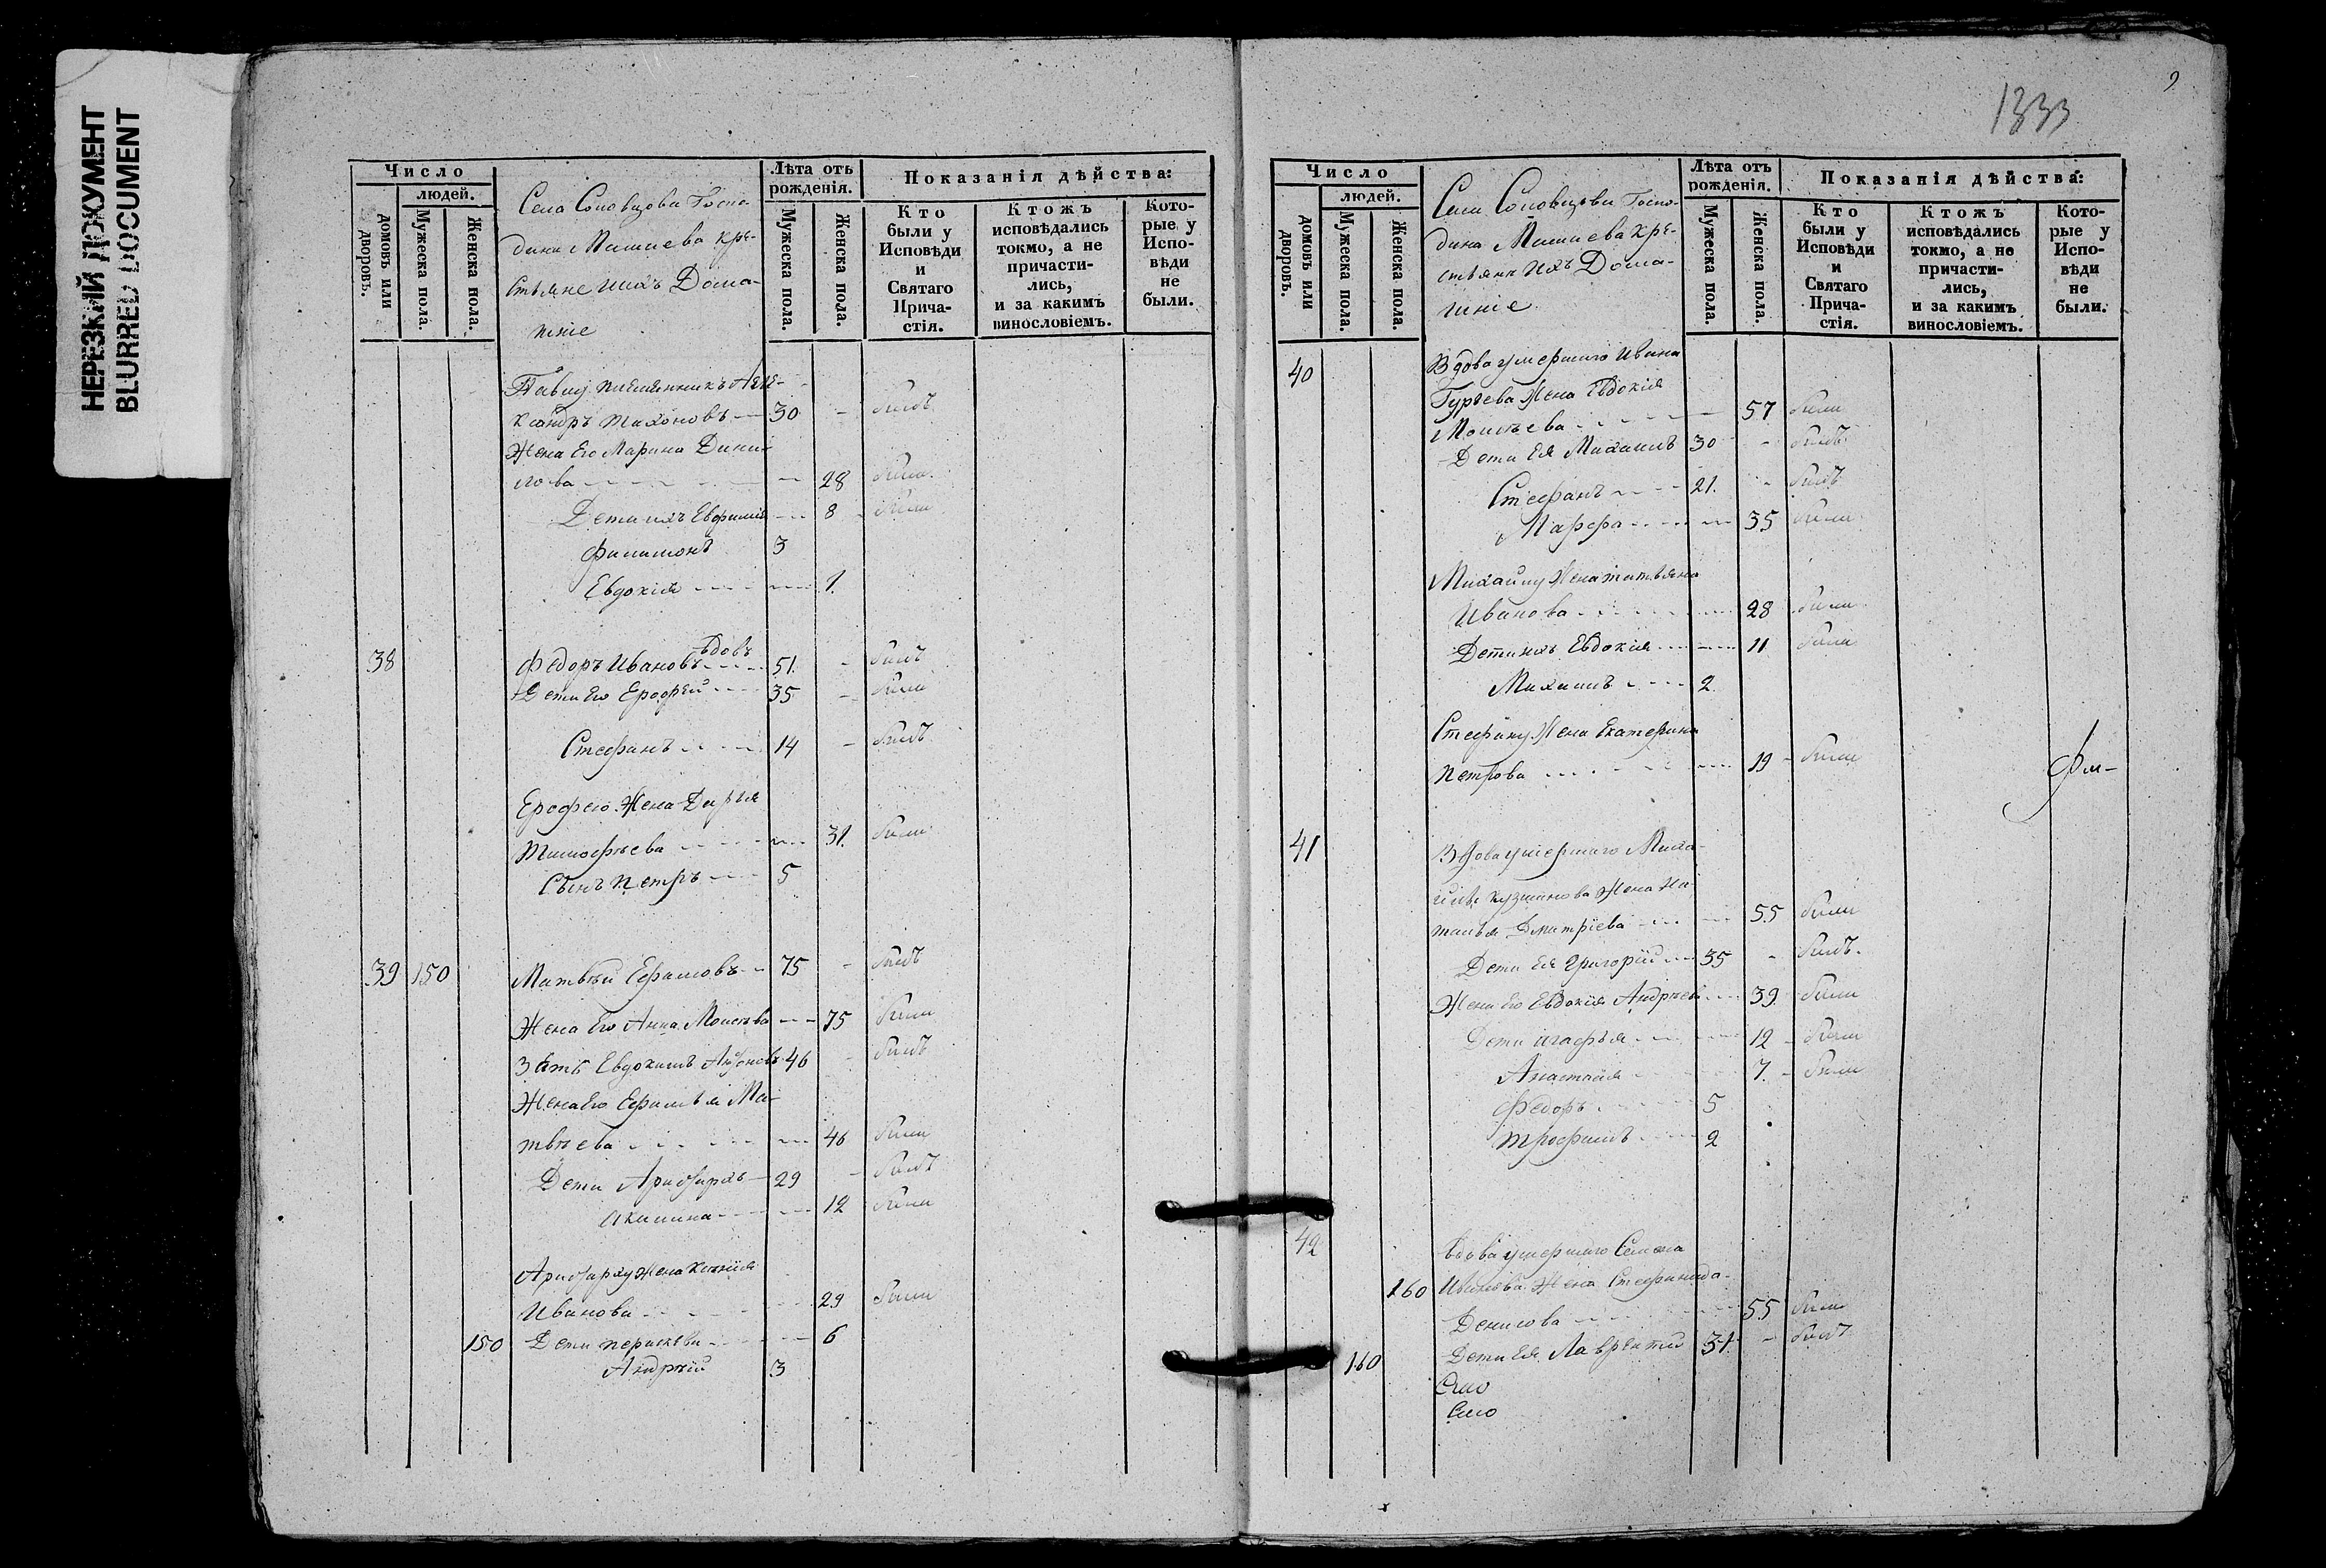 НЕРЕЗКИЙ ДОКУМЕНТ
BLURRED DOCUMENT
Число
людей.
домовъ или дворовъ.
Мужеска пола.
Женска пола.
Села Соловцова Госпо
дина Машиева кре-
стьяне ихъ Дома-
шніе
Лѣта отъ
рожденія.
Мужеска пола.
Женска пола.
Показанія дѣйства:
Кто
были у
Исповѣди
и
Святаго
Прича-
стія.
Ктожъ
исповѣдались
токмо, а не
причасти-
лись,
и за какимъ
винословіемъ.
Кото-
рые у
Испо-
вѣди
не
были.
Павлу племянникъ Але-
ксандръ Тихоновъ 30 - былъ
Жена Его Марина Дани-
лова 28 была
Дети ихъ Евфимія 8 была
Филимонъ 3
Евдокія 1.
38 Федоръ Ивановъ вдовъ 51. - былъ
Дети Его Ерофей 35 - былъ
Стефанъ 14 - былъ
Ерофею Жена Дарья
Тимофѣева 31. была
Сынъ Петръ 5
39 150 Матвѣй Ефимовъ 75 - былъ
Жена Его Анна Моисѣева 75 была
Зять Евдокимъ 46 - былъ
Жена Его Ефимья Ма-
твѣева 46 была
Дети Аристархъ 29 - былъ
Акилина 12 была
Аристарху Жена Ксенія
Иванова 29 была
150 Дети Параскева 6
Андрей 3
9
1333
Число
людей.
домовъ или дворовъ.
Мужеска пола.
Женска пола.
Села Соловцова Госпо-
дина Машиева кре-
стьяне ихъ Дома-
шніе.
Лѣта отъ
рожденія.
Мужеска пола.
Женска пола.
Показанія дѣйства:
Кто
были у
Исповѣди
и
Святаго
Прича-
стія.
Ктожъ
исповѣдались
токмо, а не
причасти-
лись,
и за какимъ
винословіемъ.
Кото-
рые у
Испо-
вѣди
не
были.
40 Вдова умершаго Ивана
Гурьева Жена Евдокія
Моисѣева 57 была
Дети Ея Михаилъ 30 - былъ
Стефанъ 21. - былъ
Марфа 35 была
Михайлу Жена татьяна
Иванова 28 была
Дети ихъ Евдокія 11 была
Михаилъ 2.
Стефану Жена Екатерина
Петрова 19 была
41 Вдова умершаго Миха-
йлы Кузминова Жена На-
талья Дмитріева 55 была
Дети Ея Григорій 35 - былъ.
Жена Его Евдокія Андреева 39. была
Дети Агафья 12 была
Анастасія 7. была
Федоръ 5
Трофимъ 2
42 Вдова умершаго Семена
160 Иванова Жена Стефанида
Денисова 55 была
160 Дети Ея Лаврентій 31. - былъ